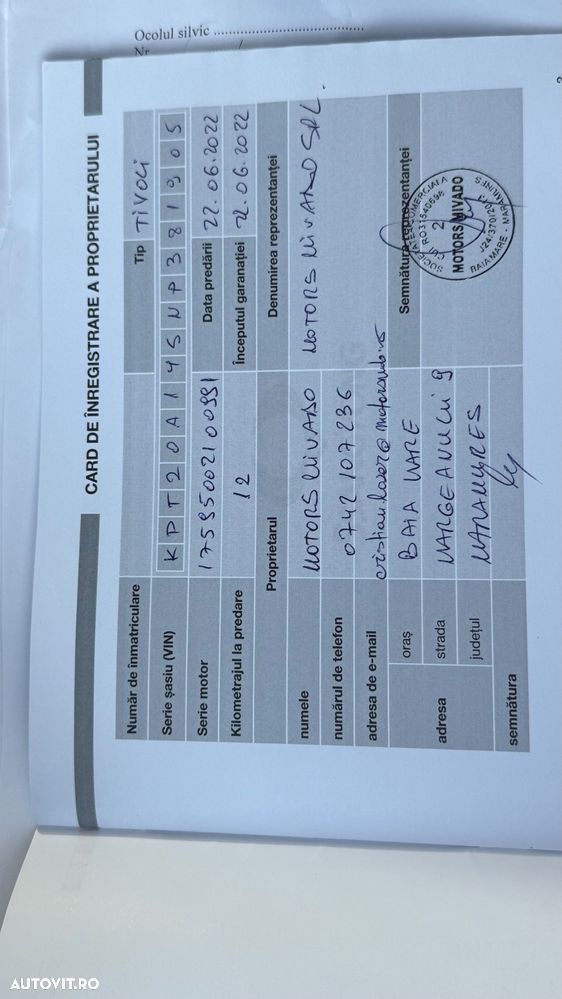 Ocolul silvic
CARD DE ÎNREGISTRARE A PROPRIETARULUI
Număr de înmatriculare
Tip TIVOLI
Serie șasiu (VIN) KPT20A14SNP381905
Serie motor 17595002100991
Data predării 22.06.2022
Kilometrajul la predare 12
Începutul garanației 22.06.2022
Proprietarul
Denumirea reprezentanței
numele MOTORS MIVADO
MOTORS MIVADO SRL.
numărul de telefon 0742 107236
adresa de e-mail
adresa
oraș BAIA MARE
Semnătura reprezentanței
strada MARGEANULUI 9
județul MARAMUREȘ
semnătura
SOCIETATEA COMERCIALA
CUI RO31540695
2
MOTORS MIVADO
BAIA MARE - MARAMUREȘ
AUTOVIT.RO